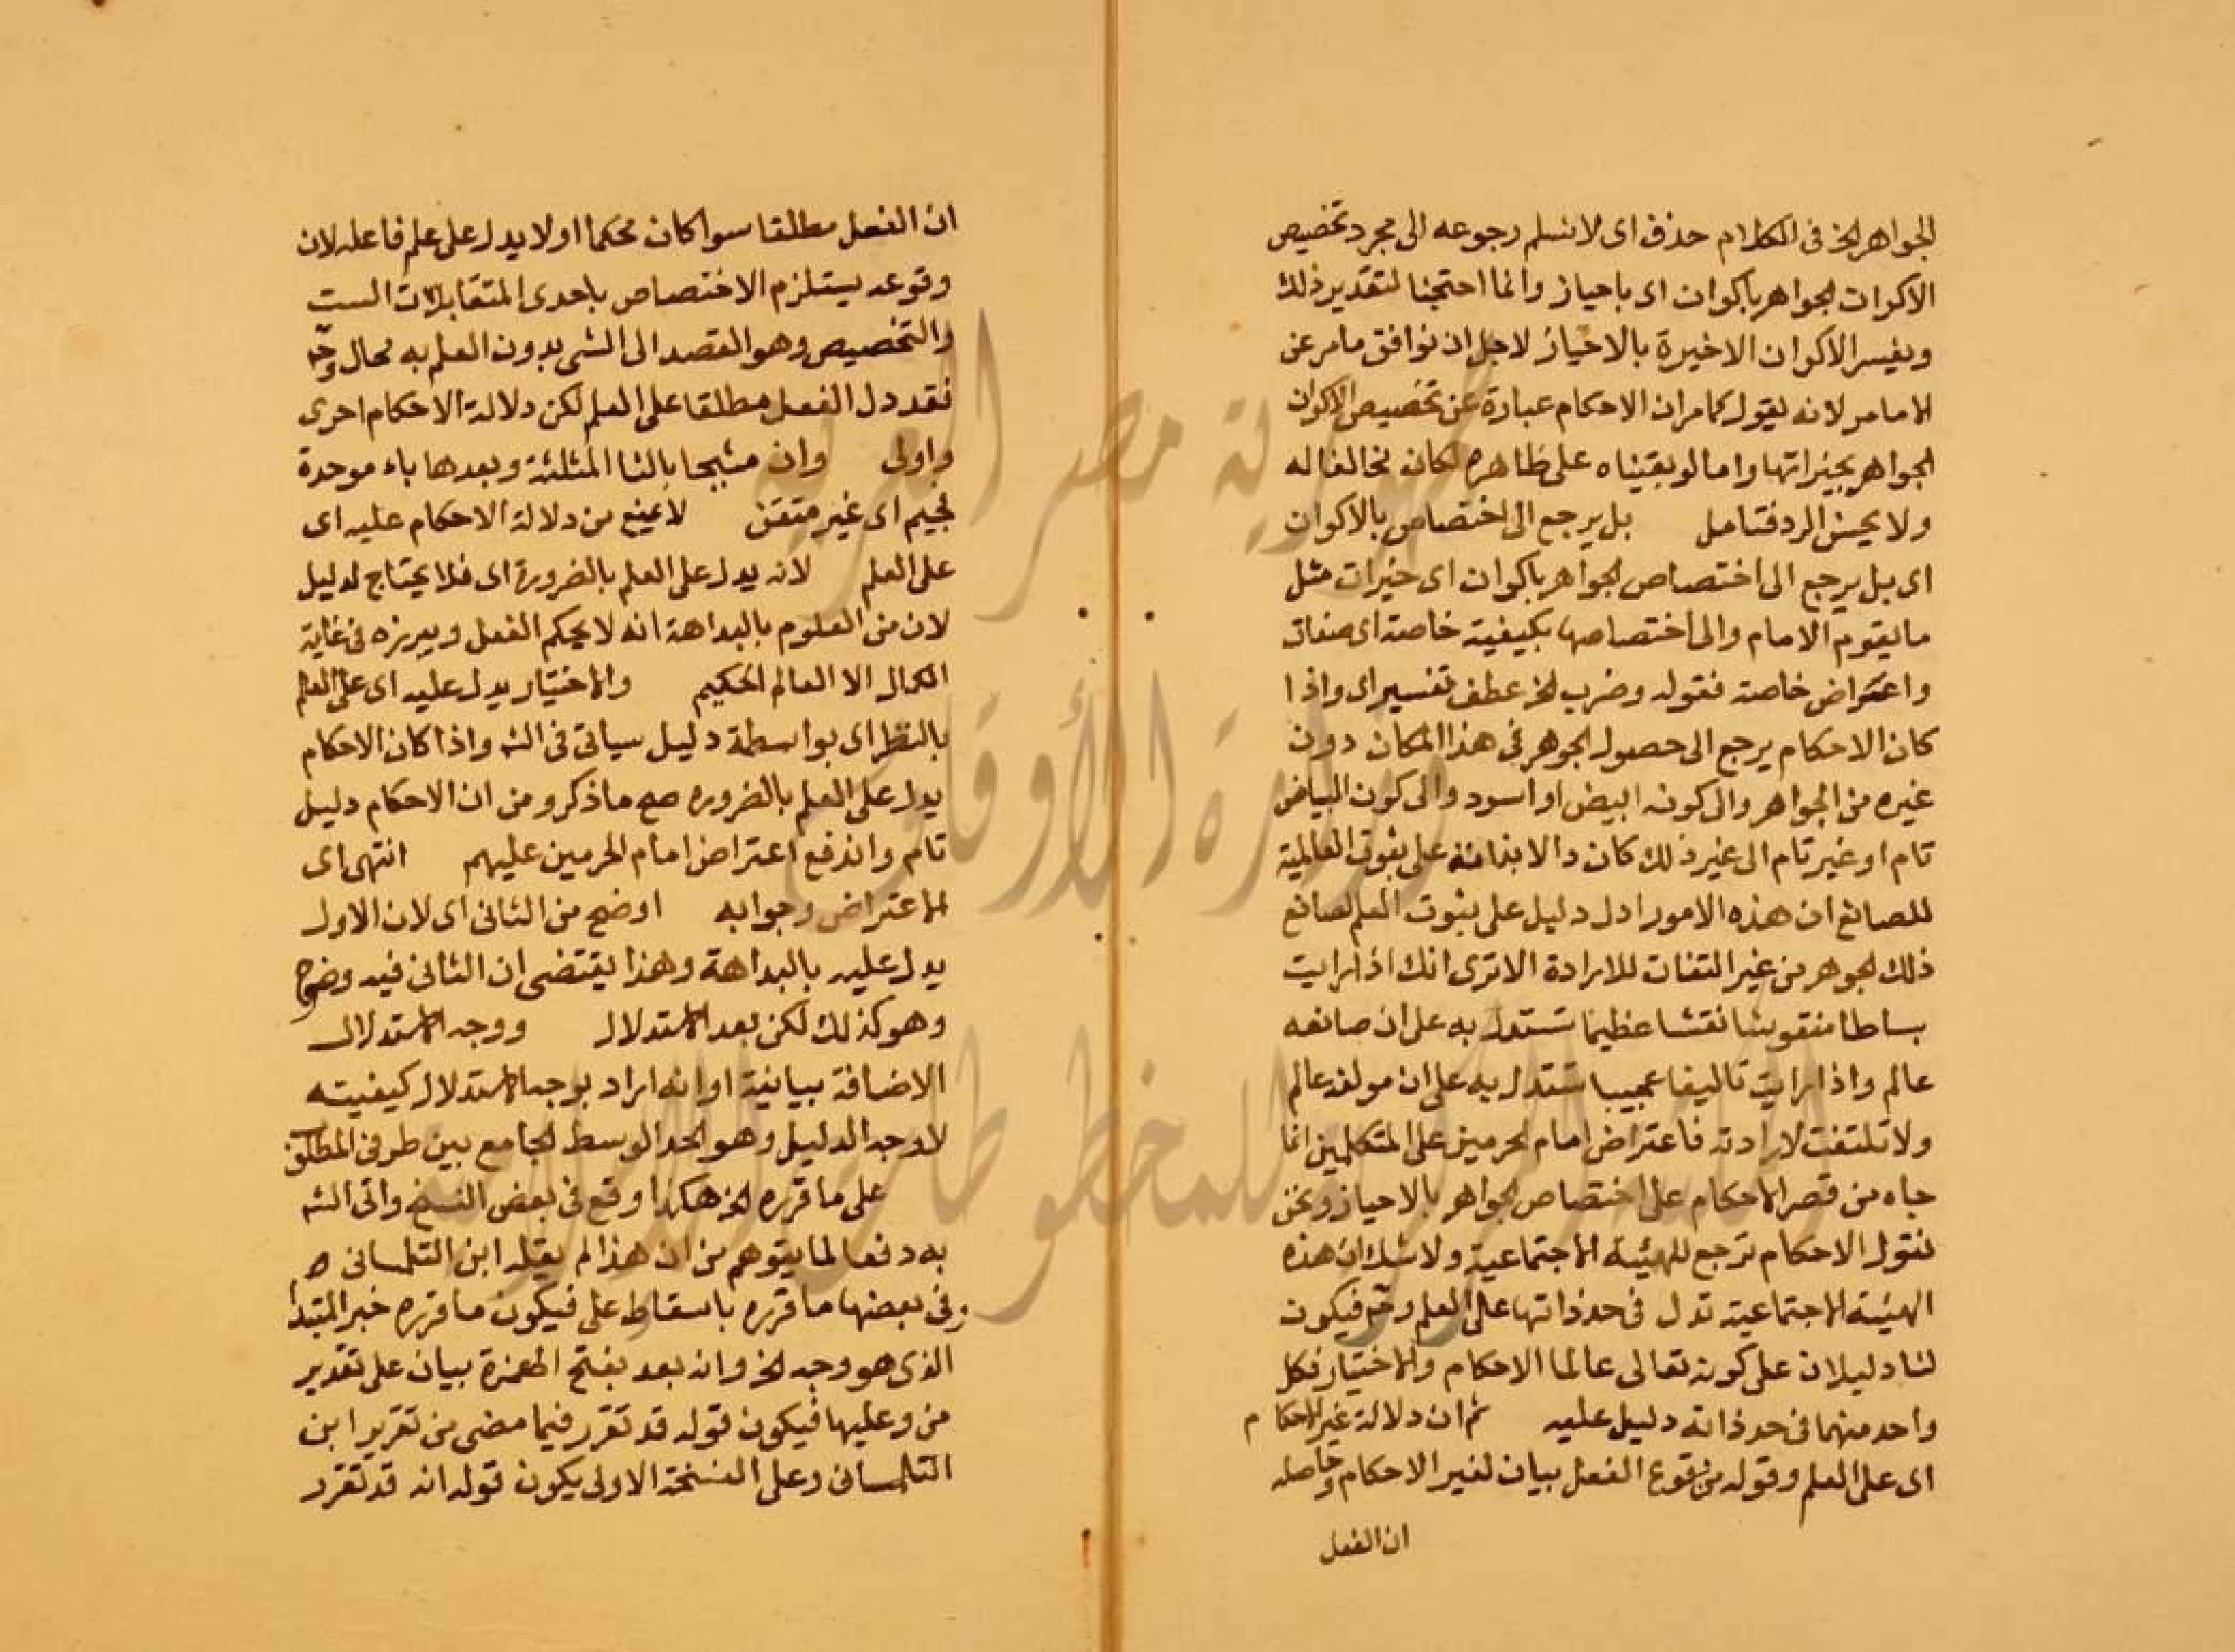 الجواهر الخ فى الكلام حذف اى لا نسلم رجوعه الى مجرد تخصيص
الاكوان الجواهر باكوان اى باحياز وانما احتجنا لتقدير ذلك
وبفسر الاكوان الاخيرة بالاحياز لاجل ان نوافق ما مر عن
الامام لانه يقول كما مر ان الاحكام عبارة عن تخصيص الاكوان
الجواهر بحيزاتها واما لو بقيناه على ظاهره لكان مخالفا له
ولا يحسن الرد فتامل بل يرجع الى اختصاص بالاكوان
اى بل يرجع الى اختصاص الجواهر باكوان اى حيزات مثل
ما يقوم الامام والى اختصاصها بكيفية خاصة اى صفات
واعراض خاصة فقوله وضرب الخ عطف تفسير اى واذا
كان الاحكام يرجع الى حصول الجوهر فى هذا المكان دون
غيره من الجواهر والى كونه ابيض او اسود والى كون البياض
تام او غير تام الى غير ذلك كان دالا بذاته على ثبوت العالمية
للصانع ان هذه الامور ادل دليل على ثبوت العلم لصانع
ذلك الجوهر من غير التفات للارادة الا ترى انك اذا رايت
بساطا منقوشا نقشا عظيما تستدل به على ان صانعه
عالم واذا رايت تاليفا عجيبا تستدل به على ان مولفه عالم
ولا تلتفت لارادته فاعتراض امام الحرمين على المتكلمين انما
جاه من قصر الاحكام على اختصاص الجواهر بالاحياز ونحن
نقول الاحكام ترجع للهيئة الاجتماعية ولا شك ان هذه
الهيئة الاجتماعية تدل فى حد ذاتها على العلم وح فيكون
لنا دليلان على كونه تعالى عالما الاحكام والاختيار فكل
واحد منهما فى حد ذاته دليل عليه ثم ان دلالة غير الاحكام
اى على العلم وقوله من وقوع الفعل بيان لغير الاحكام وحاصله
ان الفعل
ان الفعل مطلقا سوا كان محكما او لا يدل على علم فاعله لان
وقوعه يستلزم الاختصاص باحدى المتقابلات الست
والتخصيص وهو القصد الى الشى بدون العلم به محال وح
فقد دل الفعل مطلقا على العلم لكن دلالة الاحكام احرى
واولى وان مثبجا بالثا المثلثة وبعدها باء موحدة
فجيم اى غير متقن لا يمنع من دلالة الاحكام عليه اى
على العلم لانه يدل على العلم بالضرورة اى فلا يحتاج لدليل
لان من المعلوم بالبداهة انه لا يحكم الفعل ويبرزه فى غاية
الكمال الا العالم الحكيم والاختيار يدل عليه اى على العلم
بالنظر اى بواسطة دليل سياتى فى الشه واذا كان الاحكام
يدل على العلم بالضروره صح ما ذكروه من ان الاحكام دليل
تام واندفع اعتراض امام الحرمين عليهم انتهى اى
الاعتراض وجوابه اوضح من الثانى اى لان الاول
يدل عليه بالبداهة وهذا يقتضى ان الثانى فيه وضوح
وهو كذلك لكن بعد الاستدلال ووجه الاستدلال
الاضافة بيانية او انه اراد بوجه الاستدلال كيفيته
لا وجه الدليل وهو الحد الوسط الجامع بين طرفى المطلوب
على ما قرره الخ هكذا وقع فى بعض النسخ واتى الشه
به دفعا لما يتوهم من ان هذا لم يقله ابن التلمسانى ص
وفى بعضها ما قرره باسقاط على فيكون ما قرره خبر المبتدا
الذى هو وجه الخ وانه بعد بفتح الهمزة بيان على تقدير
من وعليها فيكون قوله قد تقرر فيما مضى من تقرير ابن
التلمسانى وعلى النسخة الاولى يكون قوله انه قد تقرر